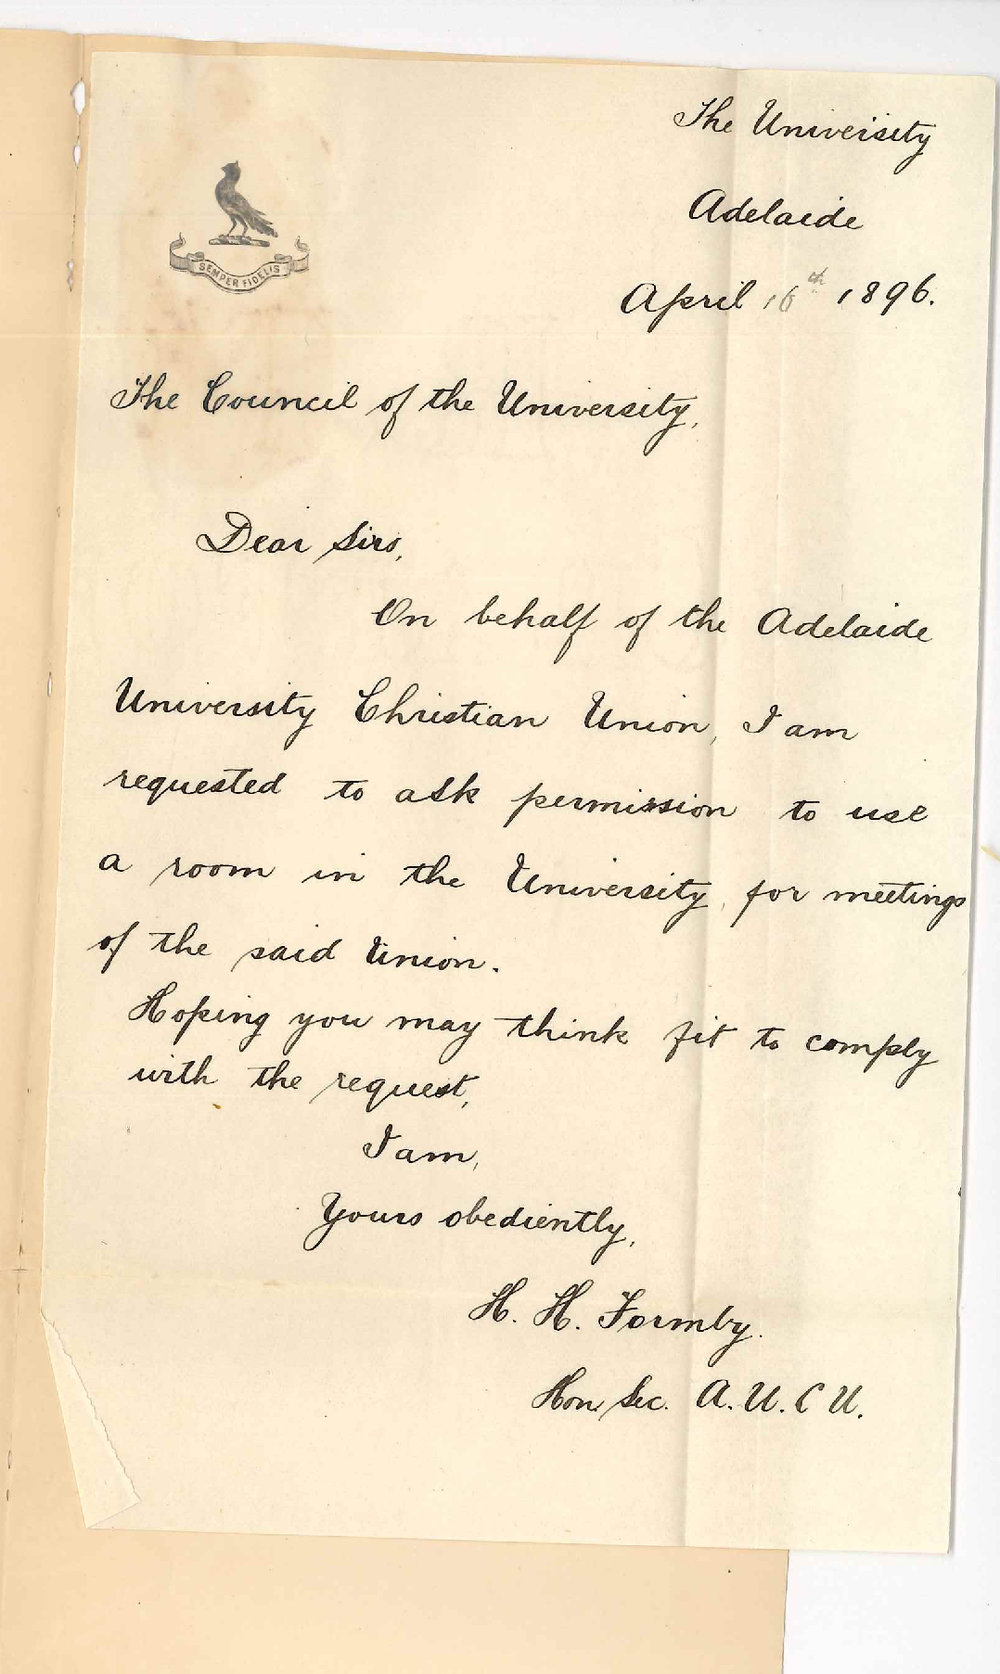 The University
Adelaide
April 16th 1896.
SEMPER FIDELIS
The Council of the University,
Dear Sirs,
On behalf of the Adelaide
University Christian Union, I am
requested to ask permission to use
a room in the University, for meetings
of the said Union.
Hoping you may think fit to comply
with the request,
I am,
Yours obediently,
H. H. Formby.
Hon. Sec. A. U. C U.